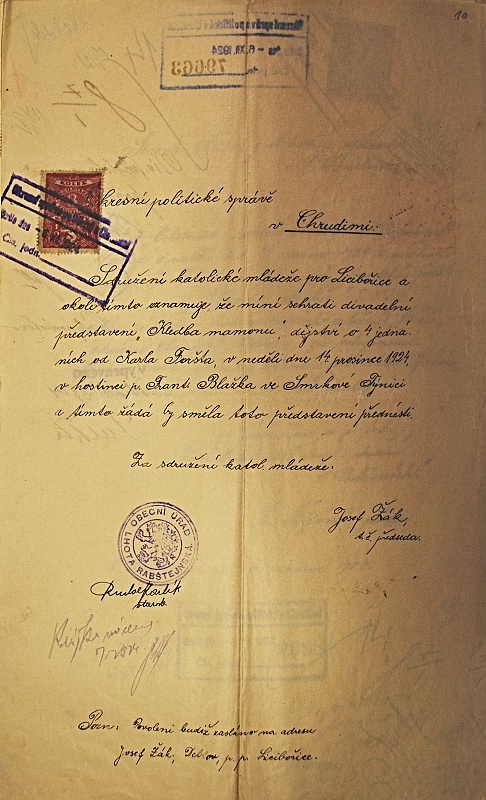 10
6. XII. 1924
79663
KOLEK
kresní politické správě
v Chrudimi.
Sdružení katolické mládeže pro Licibořice a
okolí tímto oznamuje, že míní sehrati divadelní
představení „Kledba mamonu", dějství o 4 jedná-
ních od Karla Foršta, v neděli dne 14. prosince 1924,
v hostinci p. Frant. Blažka ve Smrkově Týnici
a tímto žádá by směla toto představení přednésti.
Za sdružení katol. mládeže:
Josef Žák,
t. č. předseda.
OBECNÍ ÚŘAD
LHOTI RABŠTEJNSKÁ
Rudolf
starosta
Pozn: Povolení budiž zasláno na adresu
Josef Žák, p. p. Licibořice.